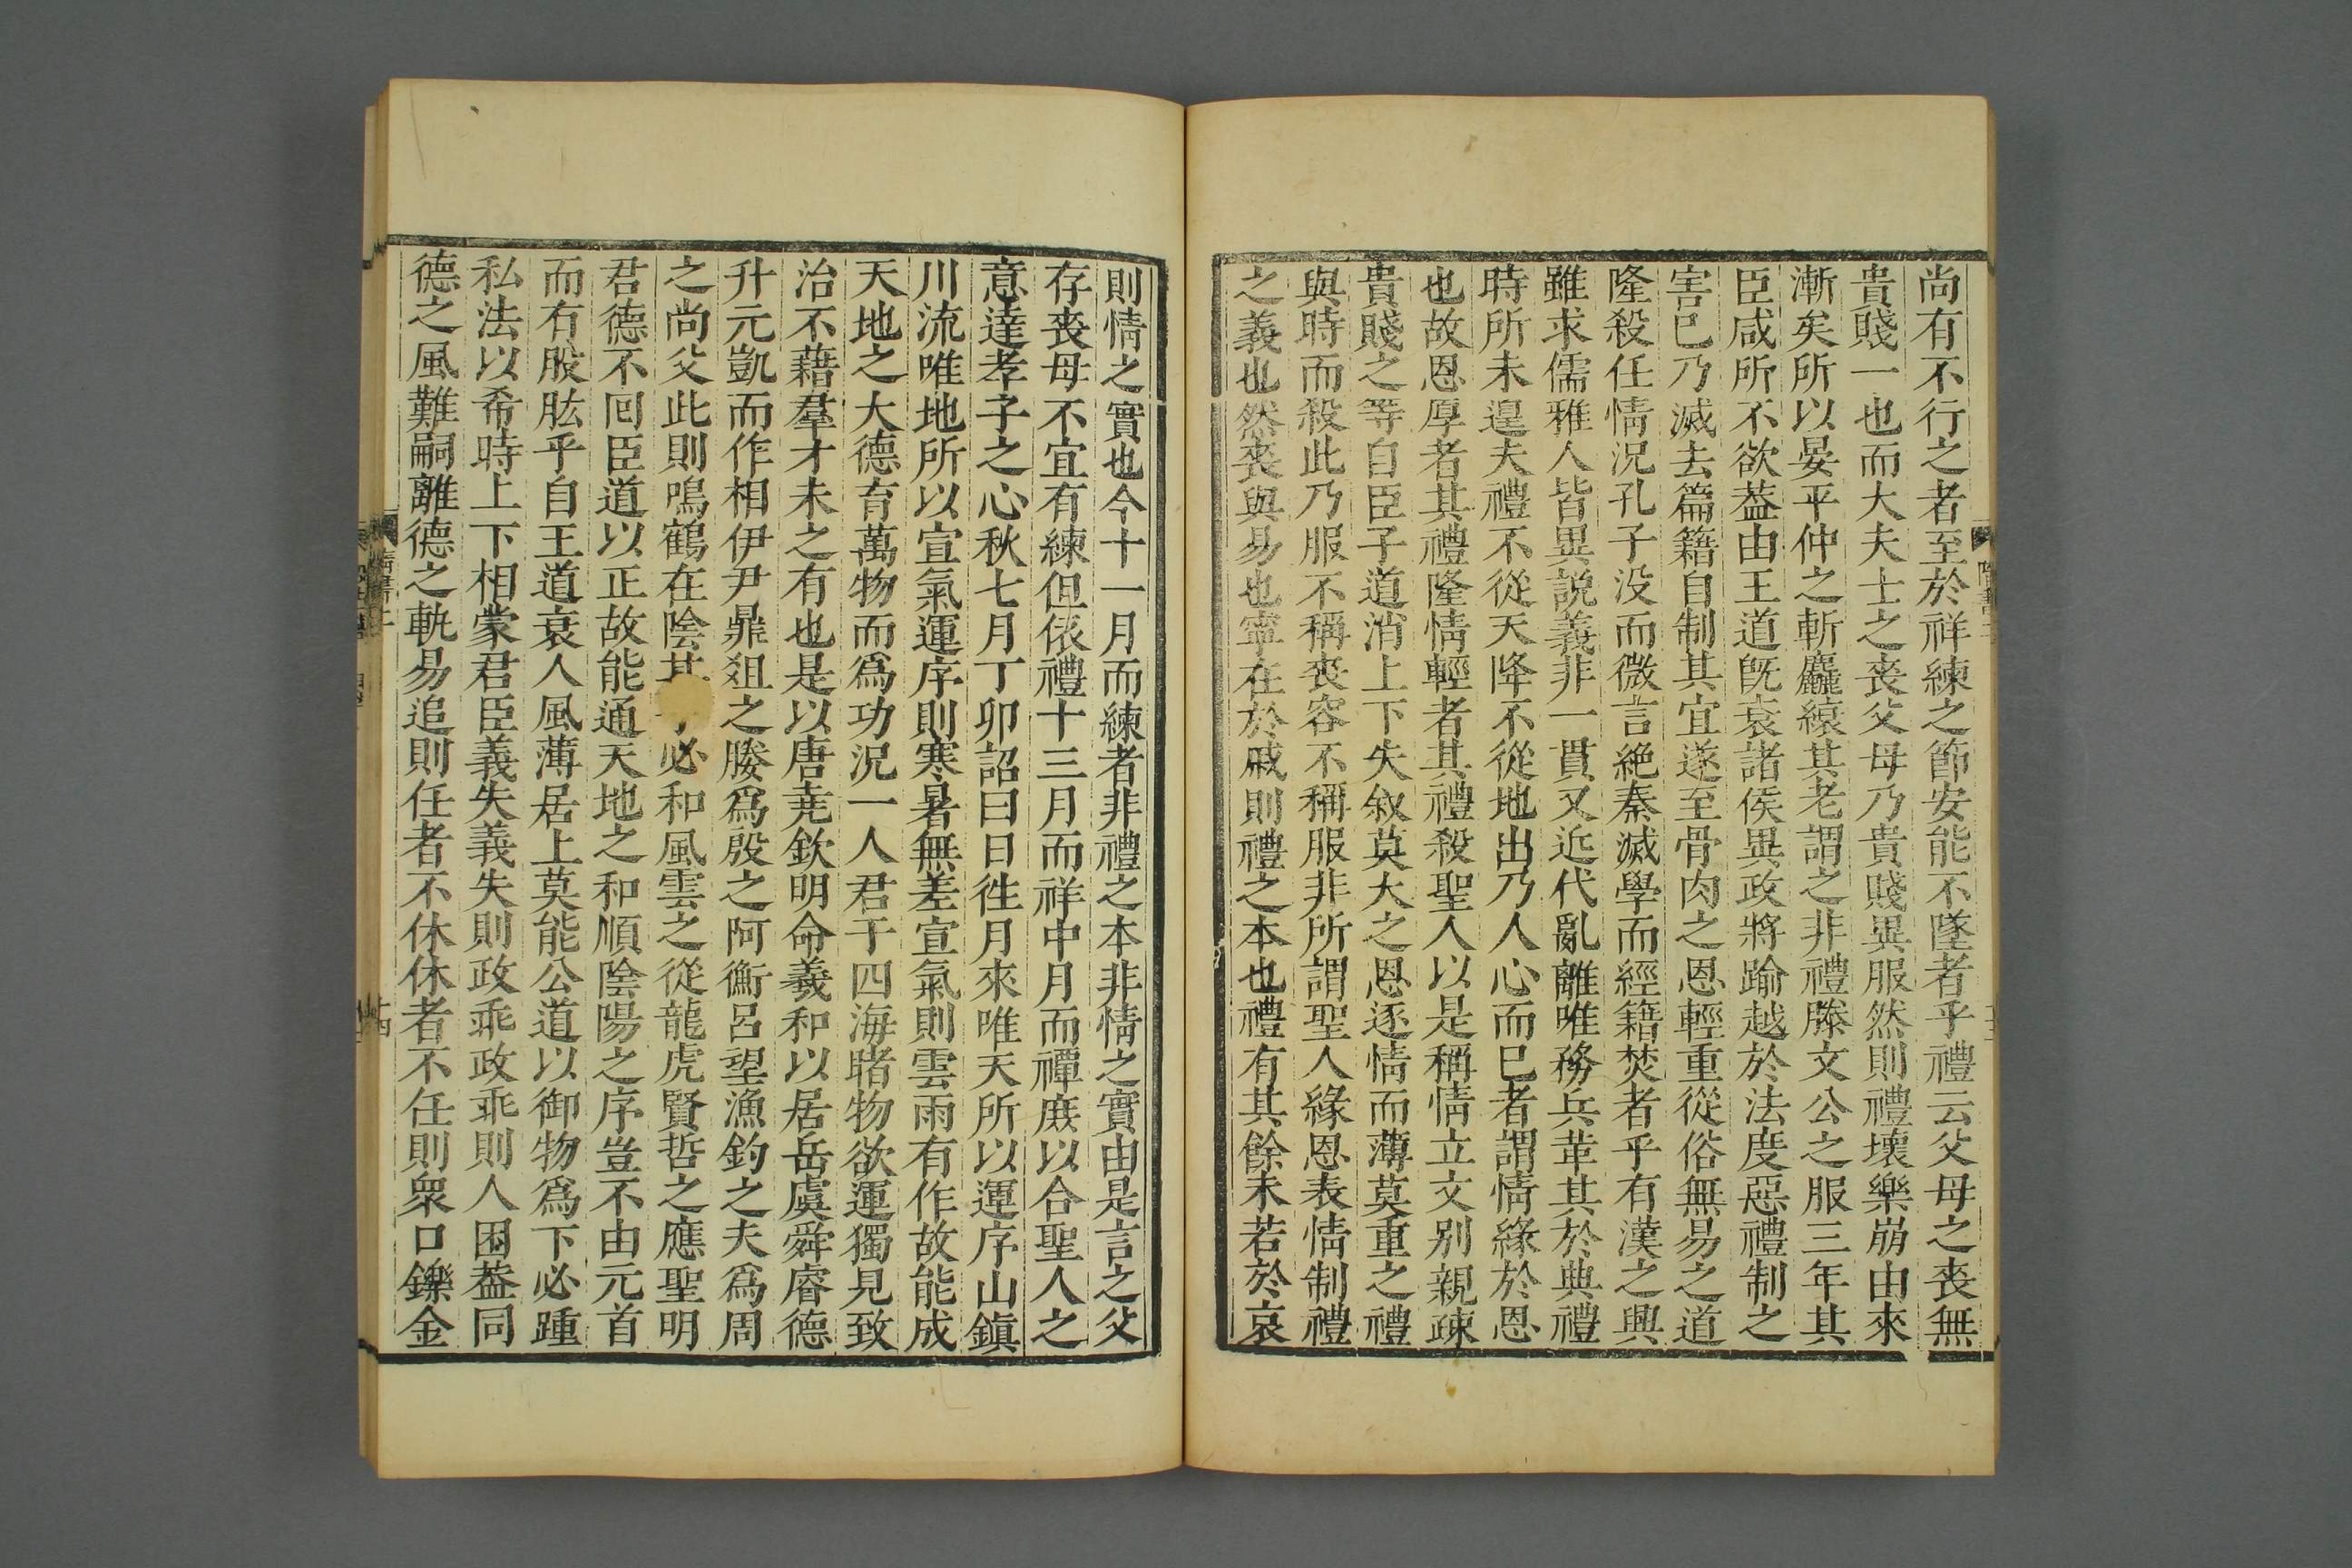 尚有不行之者至於祥練之節安能不墜者乎禮云父母之喪無
貴賤一也而大夫士之喪父母乃貴賤異服然則禮壞樂崩由來
漸矣所以晏平仲之斬麤縗其老謂之非禮滕文公之服三年其
臣咸所不欲葢由王道旣衰諸侯異政將踰越於法度惡禮制之
害巳乃滅去篇籍自制其宜遂至骨肉之恩輕重從俗無易之道
隆殺任情況孔子没而微言絶秦滅學而經籍焚者乎有漢之興
雖求儒雅人皆異説義非一貫又近代亂離唯務兵革其於典禮
時所未遑夫禮不從天降不從地出乃人心而巳者謂情緣於恩
也故恩厚者其禮隆情輕者其禮殺聖人以是稱情立文别親疎
貴賤之等自臣子道消上下失敘莫大之恩逐情而薄莫重之禮
與時而殺此乃服不稱喪容不稱服非所謂聖人緣恩表情制禮
之義也然喪與易也寧在於戚則禮之本也禮有其餘未若於哀
則情之實也今十一月而練者非禮之本非情之實由是言之父
存喪母不宜有練但依禮十三月而祥中月而禫庶以合聖人之
意達孝子之心秋七月丁卯詔曰日徃月來唯天所以運序山鎭
川流唯地所以宣氣運序則寒暑無差宣氣則雲雨有作故能成
天地之大德育萬物而爲功況一人君于四海睹物欲運獨見致
治不藉羣才未之有也是以唐堯欽明命羲和以居岳虞舜睿德
升元凱而作相伊尹鼎俎之媵爲殷之阿衡呂望漁釣之夫爲周
之尚父此則鳴鶴在陰其必和風雲之從龍虎賢哲之應聖明
君德不回臣道以正故能通天地之和順陰陽之序豈不由元首
而有股肱乎自王道衰人風薄居上莫能公道以御物爲下必踵
私法以希時上下相蒙君臣義失義失則政乖政乖則人困葢同
德之風難嗣離德之軌易追則任者不休休者不任則衆口鑠金